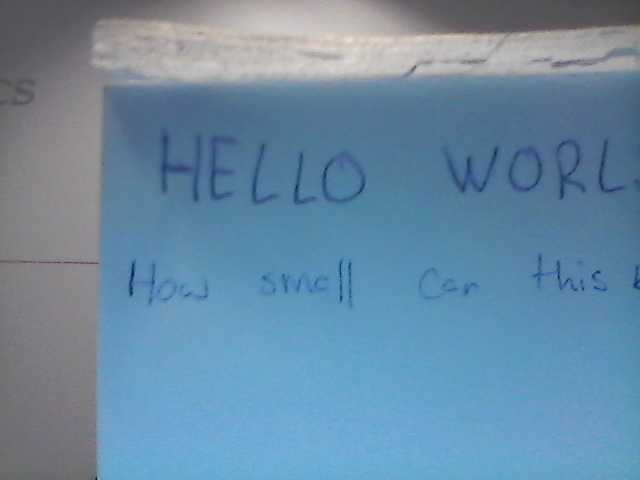 cs
HELLO WORL
How small can this